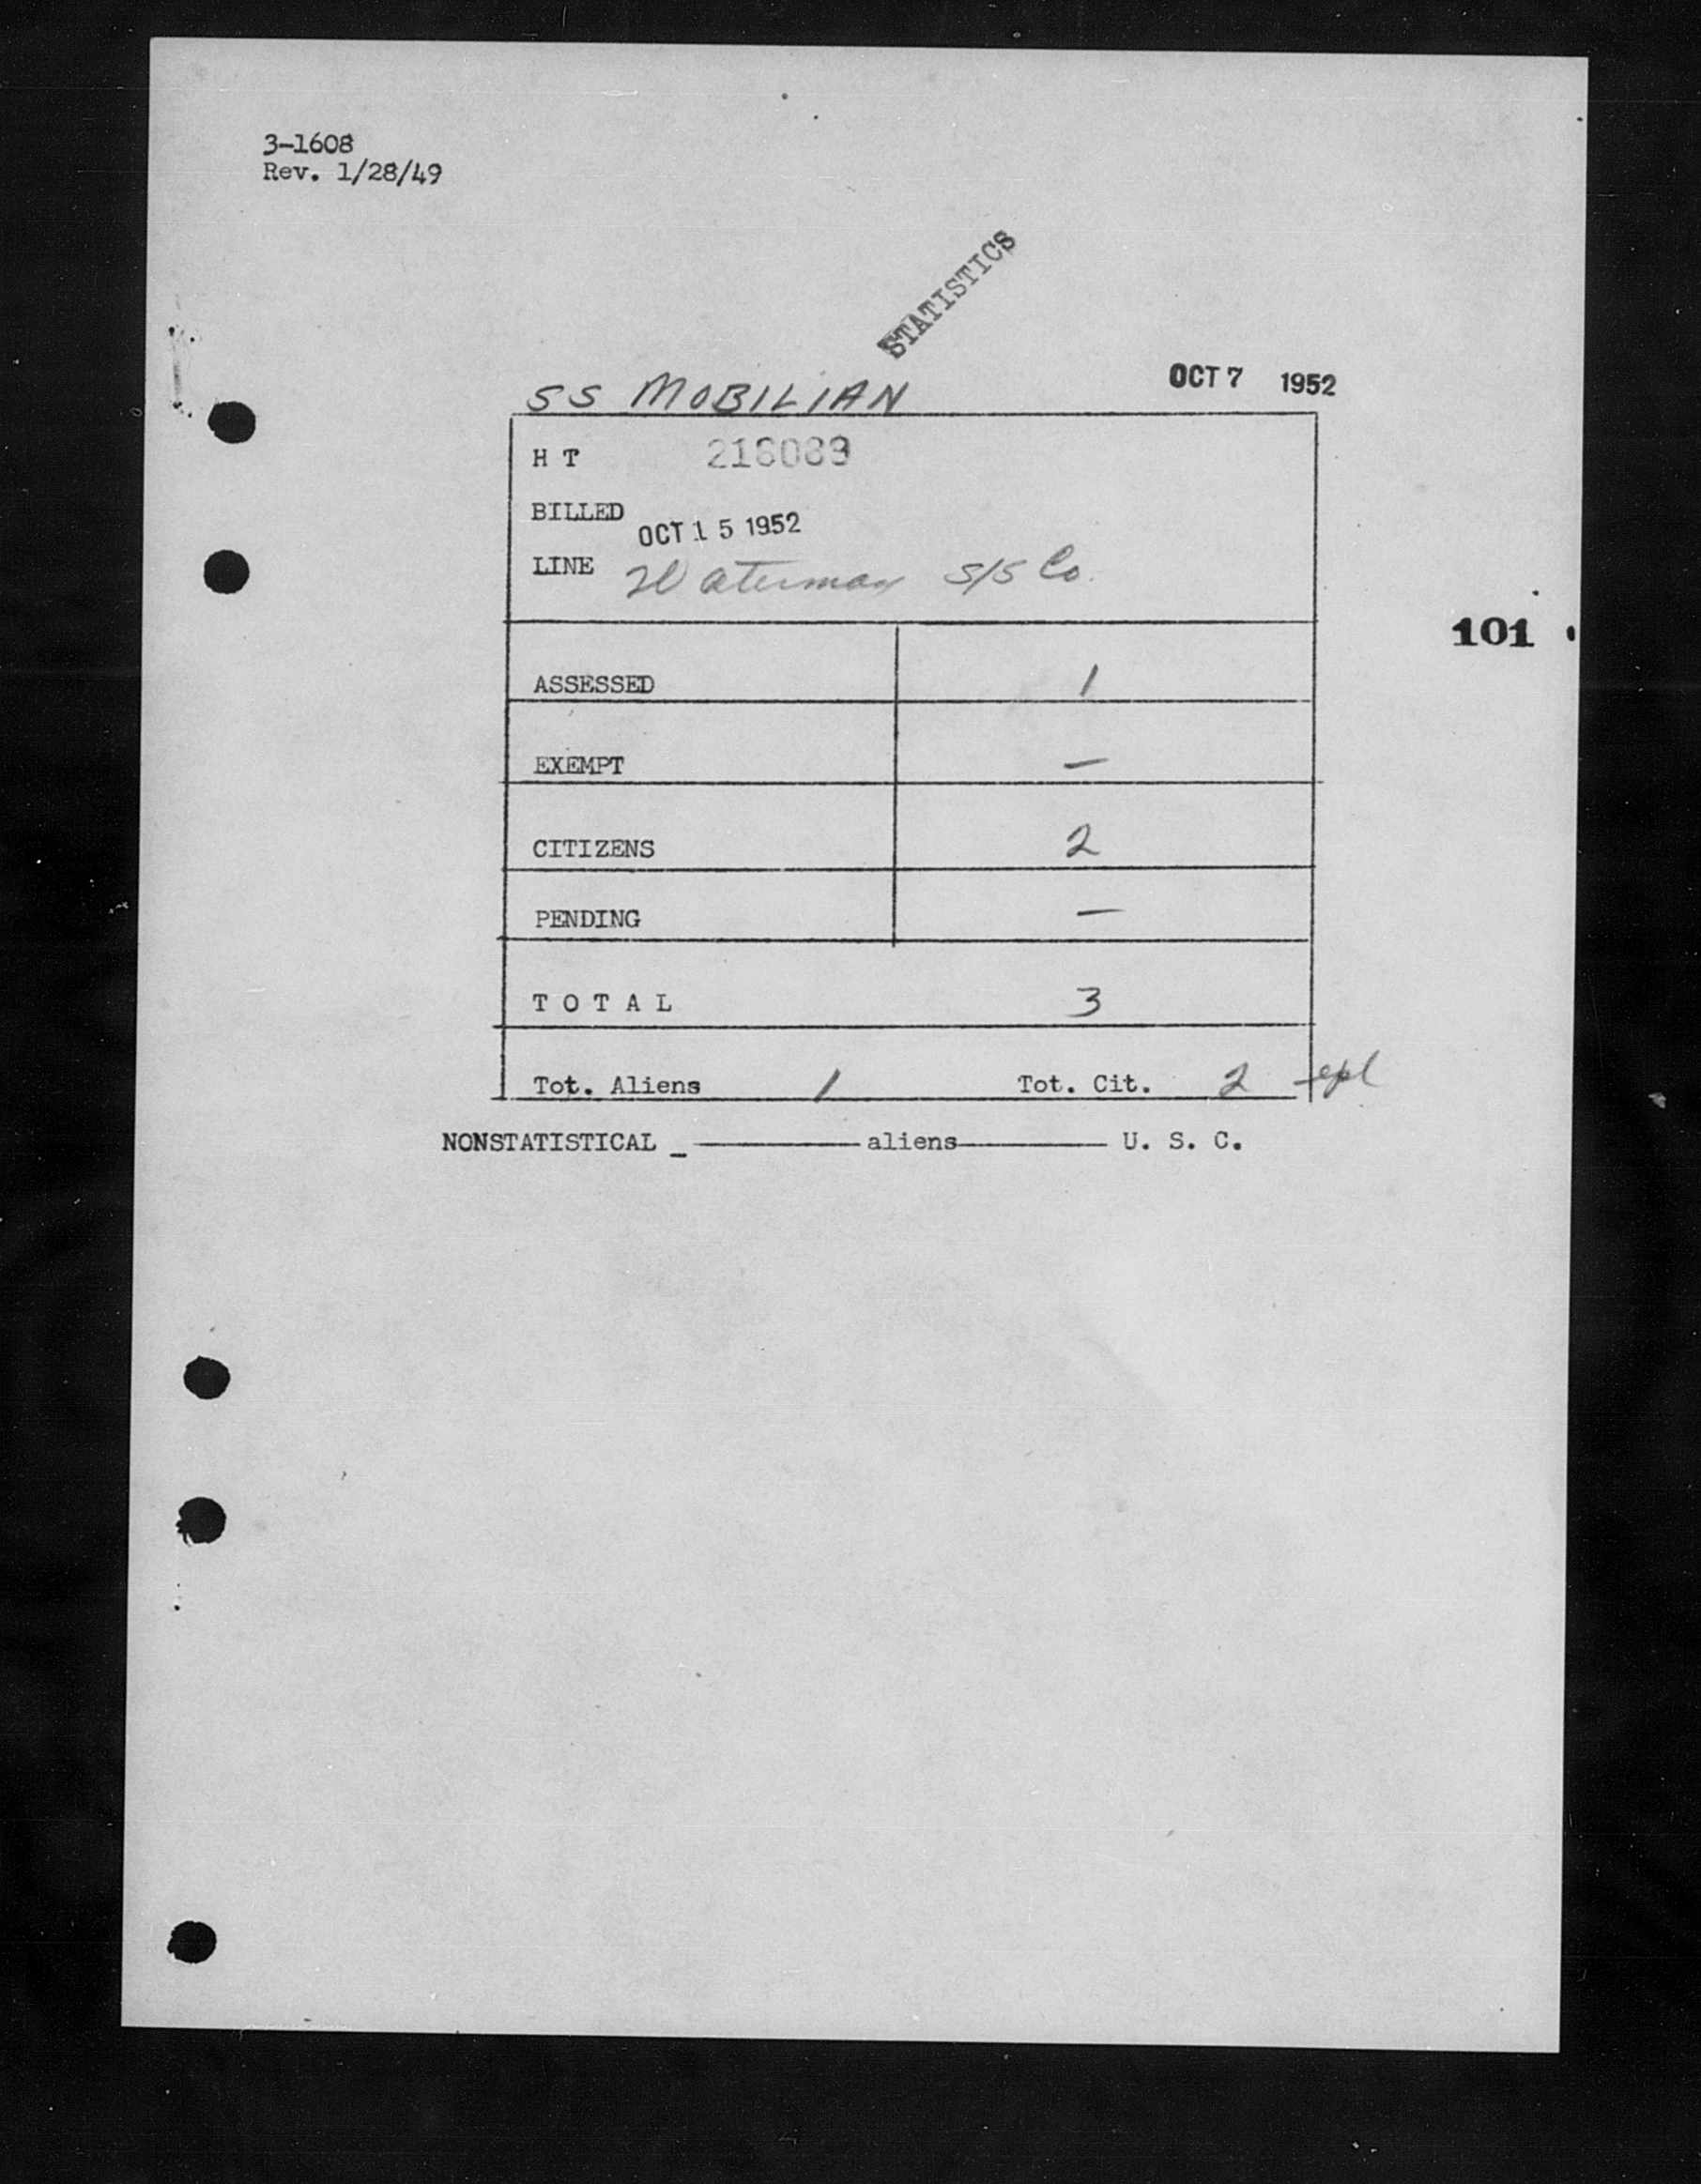 3-1608
Rev. 1/28/49
STATISTICS
SS MOBILIAN OCT 7 1952
H T 216089
BILLED OCT 15 1952
LINE Waterman S/S Co.
101
ASSESSED 1
EXEMPT —
CITIZENS 2
PENDING —
T O T A L 3
Tot. Aliens 1 Tot. Cit. 2
NONSTATISTICAL _ ——— aliens ——— U. S. C.